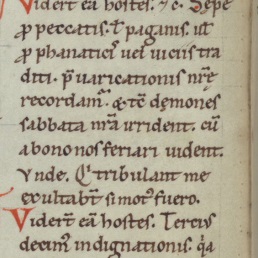 Viderṫ eā hostes. ⁊c. Sepe
ꝓ peccatis. ł paganis. ul
ꝓ phanaticꝰ uel uiciis tra
diti. p̄uaricationis nr̄ę
recordamꝰ. ⁊ tc̄ dęmones
sabbata nr̄a irrident. cū
a bono nos feriari uident.
Vnde. Qi tribulant me
exultabt̄ si motꝰ fuero.
Viderṫ eā hostes. Tercius
decimꝰ indignationis. qa